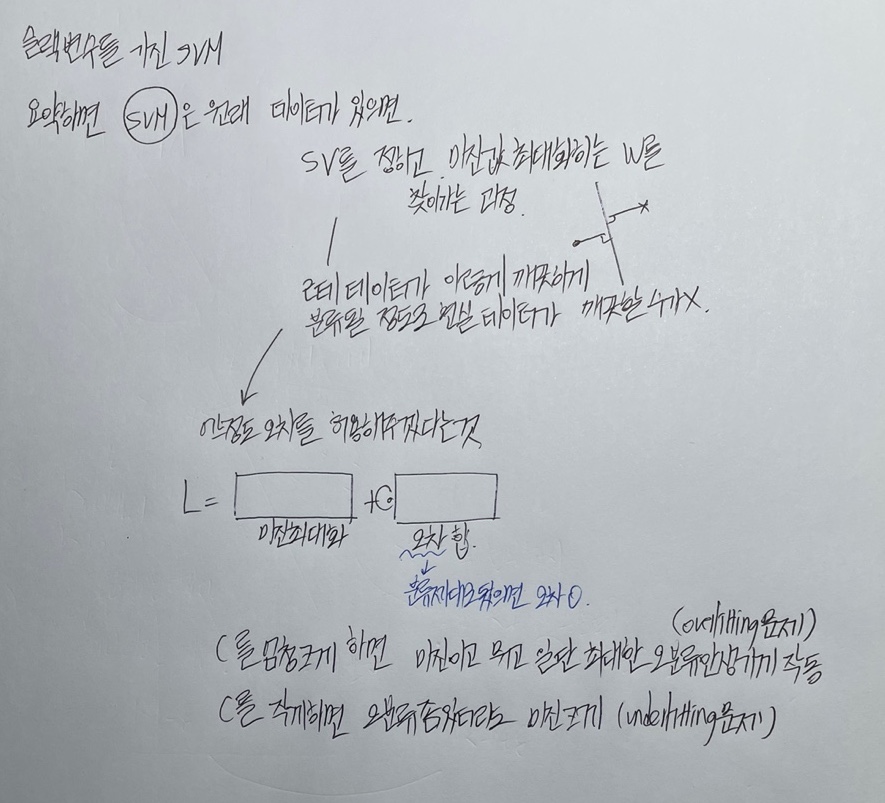 슬랙변수를 가진 SVM
요약하면 SVM은 원래 데이터가 있으면.
SV를 정하고 마진값 최대화하는 W를
찾아가는 과정.
근데 데이터가 아름답게 깨끗하게
분류될 정도로 현실 데이터가 깨끗할 수가 X.
어느정도 오차를 허용해주겠다는것
L= + C·
마진최대화 오차 합.
분류제대로됐으면 오차 0.
(overfitting문제)
C를 엄청크게 하면 마진이고 뭐고 일단 최대한 오분류안생기게 작동
C를 작게하면 오분류좀있더라도 마진크게 (underfitting문제)